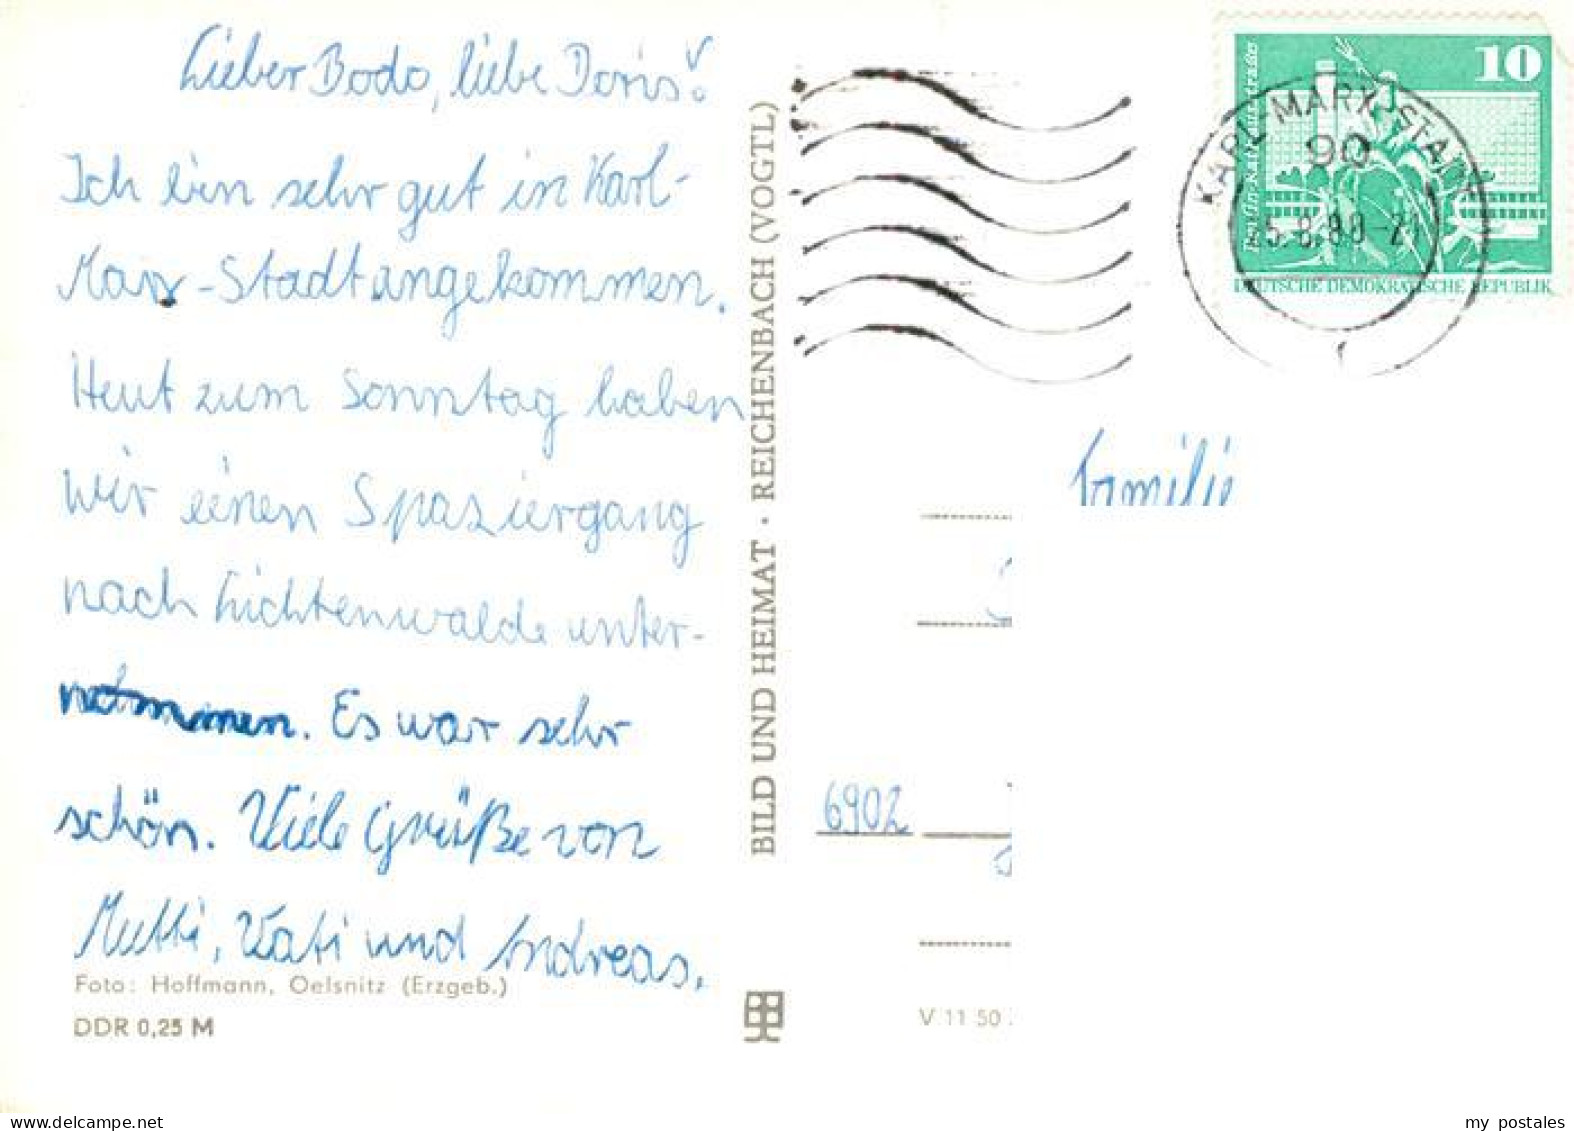 Lieber Bodo, liebe Doris!
Ich bin sehr gut in Karl-
Marx-Stadt angekommen.
Heut zum Sonntag haben
wir einen Spaziergang
nach Lichtenwalde unter-
nehmen. Es war sehr
schön. Viele Grüße von
Mutti, Vati und Andreas.
Foto: Hoffmann, Oelsnitz (Erzgeb.)
DDR 0,25 M
BILD UND HEIMAT · REICHENBACH (VOGTL)
10
DEUTSCHE DEMOKRATISCHE REPUBLIK
KARL-MARX-STADT
90
5.8.80-21
Familie
6902
V 11 50
delcampe.net
my postales